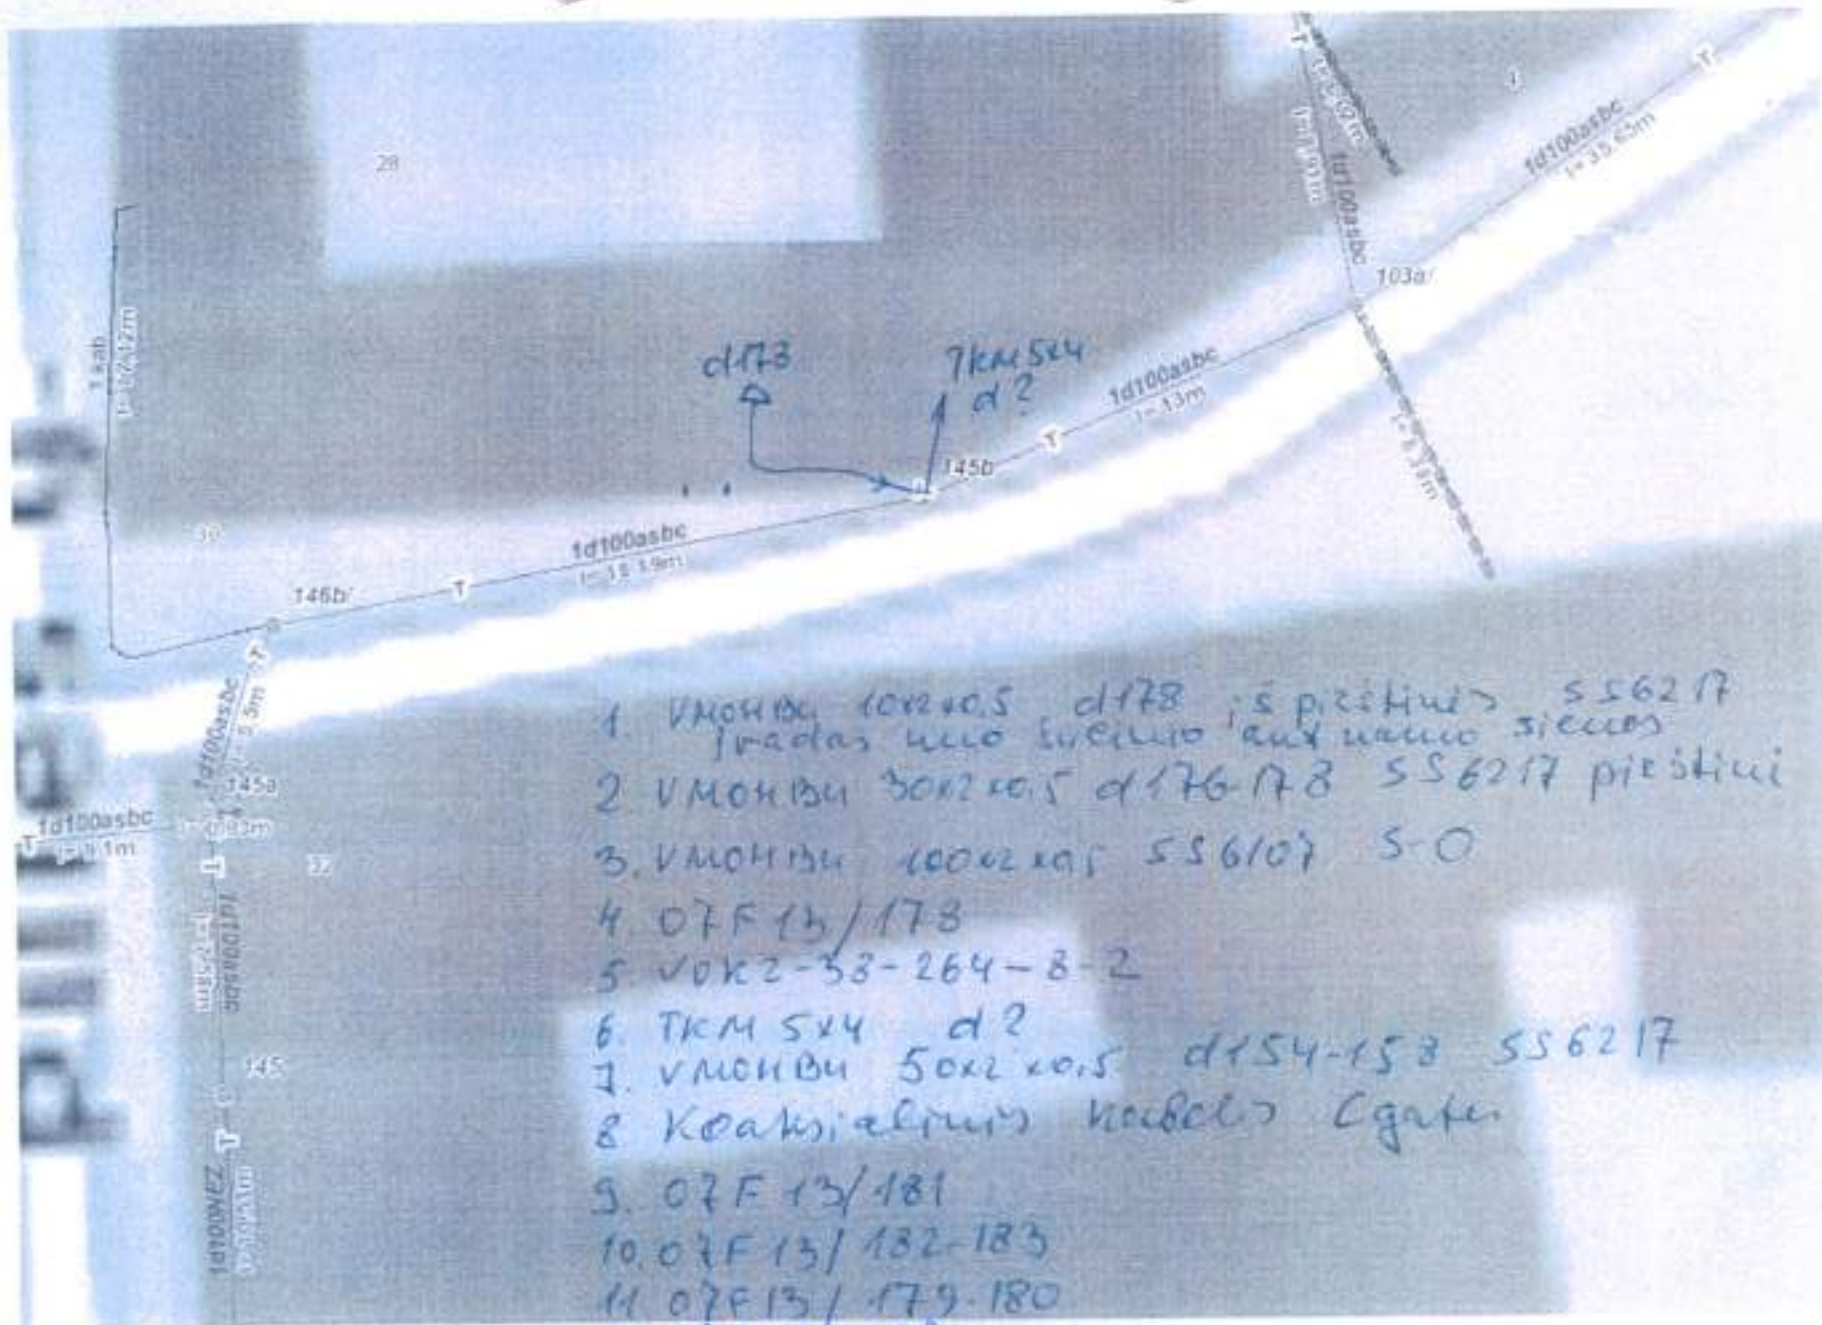 28
T
1d100asbc
l= 35.65m
T
1d100asbc
103a/
1 kab
d173
TKM 5x4
d ?
1d100asbc
l= 13m
T
145b
30
1d100asbc
T
146b/
1d100asbc
145a
1d100asbc
T
T
145
T
1d100NEZ
1. VMOHBU 10x2x0.5 d178 iš pirštinės SS6217
įvadas nuo ant namo sienos
2 VMOHBU 30x2x0.5 d176-178 SS6217 pirštinė
3. VMOHBU 100x2x0,5 SS6107 S-O
4. 07F13/178
5 VOK2-38-264-8-2
6. TKM 5x4 d ?
7. VMOHBU 50x2x0.5 d154-158 SS6217
8 Koaksialinis kabelis Cgates
9. 07F 13/181
10. 07F 13/182-183
11 07F13/179-180